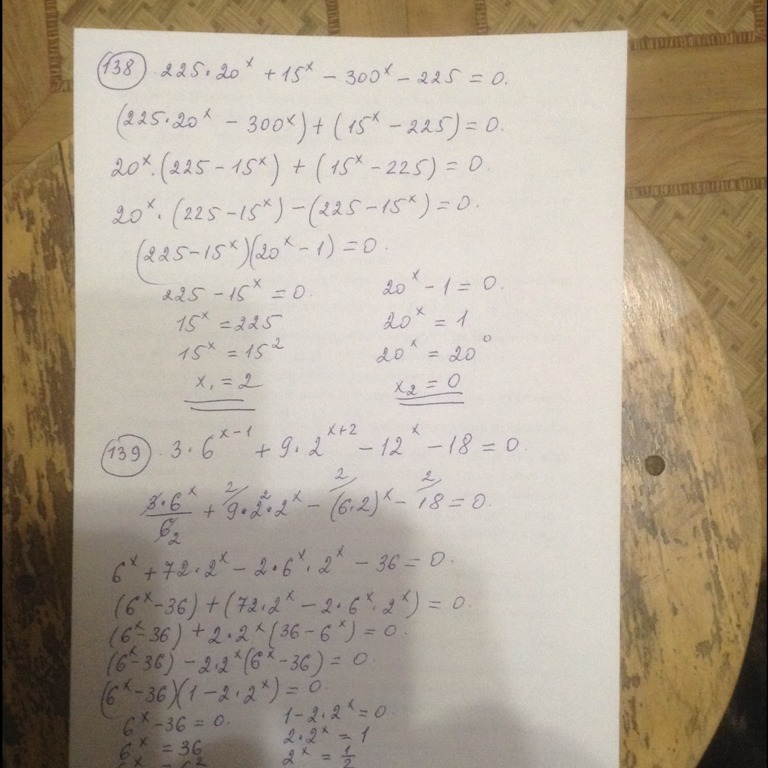 138 225·20ˣ + 15ˣ − 300ˣ − 225 = 0.
(225·20ˣ − 300ˣ) + (15ˣ − 225) = 0.
20ˣ·(225 − 15ˣ) + (15ˣ − 225) = 0.
20ˣ·(225 − 15ˣ) − (225 − 15ˣ) = 0.
(225 − 15ˣ)(20ˣ − 1) = 0.
225 − 15ˣ = 0. 20ˣ − 1 = 0.
15ˣ = 225 20ˣ = 1
15ˣ = 15² 20ˣ = 20⁰
x₁ = 2 x₂ = 0
139 3·6ˣ⁻¹ + 9·2ˣ⁺² − 12ˣ − 18 = 0.
3·6ˣ/6₂ + ²⁄9·2²·2ˣ − ²⁄(6·2)ˣ − ²⁄18 = 0.
6ˣ + 72·2ˣ − 2·6ˣ·2ˣ − 36 = 0.
(6ˣ − 36) + (72·2ˣ − 2·6ˣ·2ˣ) = 0.
(6ˣ − 36) + 2·2ˣ(36 − 6ˣ) = 0.
(6ˣ − 36) − 2·2ˣ(6ˣ − 36) = 0.
(6ˣ − 36)(1 − 2·2ˣ) = 0.
6ˣ − 36 = 0. 1 − 2·2ˣ = 0.
6ˣ = 36 2·2ˣ = 1
2ˣ = 1/2